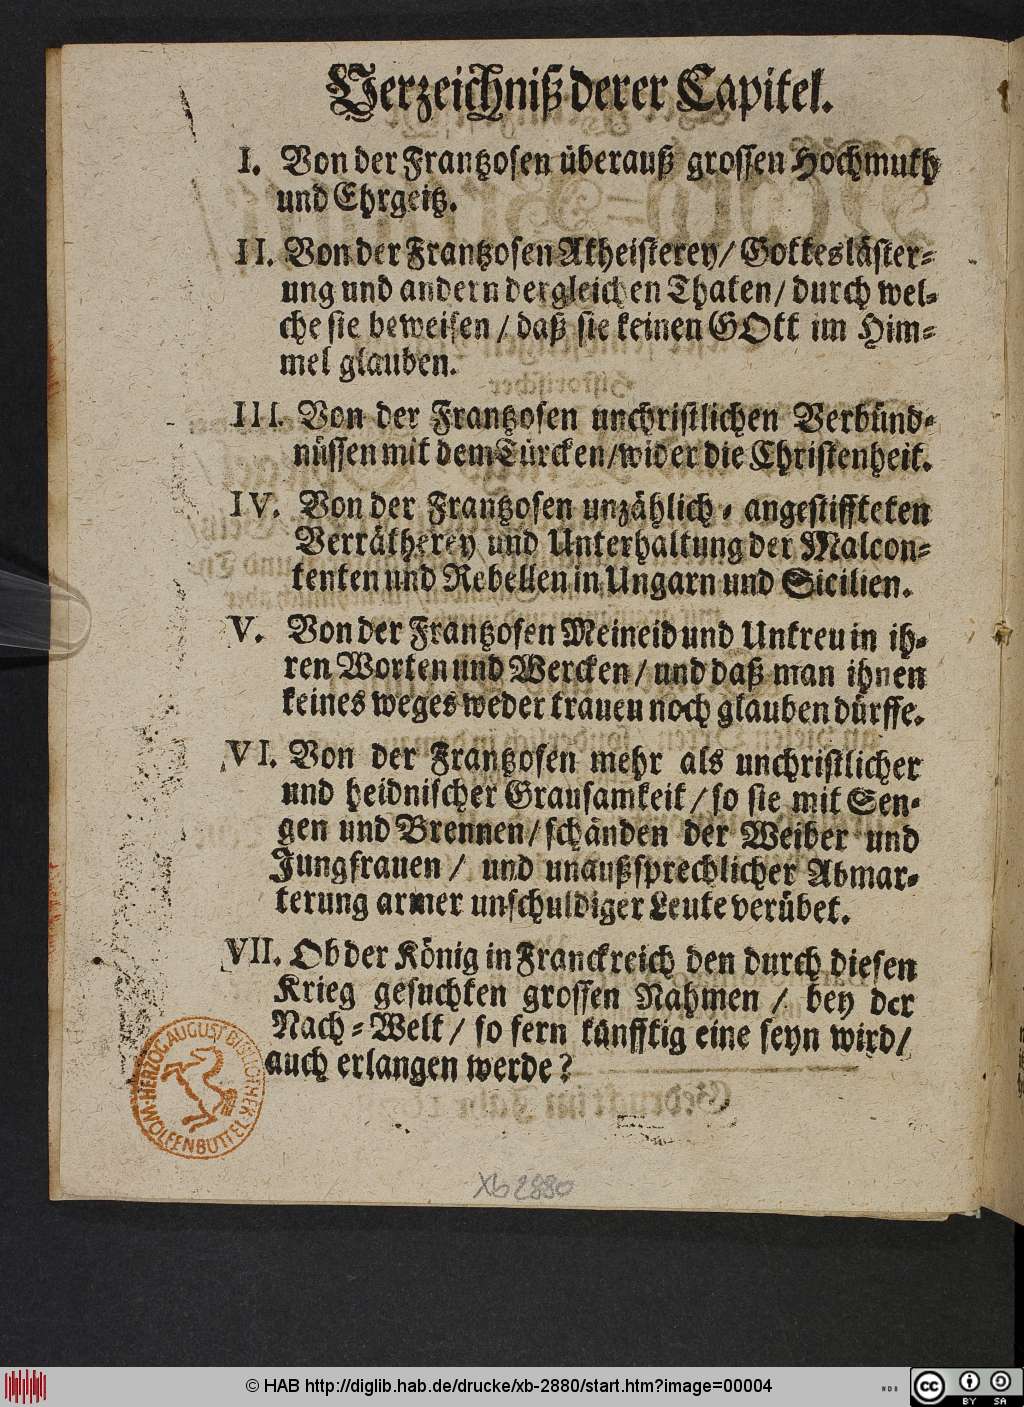 Verzeichniß derer Capitel.
I. Von der Frantzosen überauß grossen Hochmuth
und Ehrgeitz.
II. Von der Frantzosen Atheisterey/ Gottesläster-
ung und andern dergleichen Thaten/ durch wel-
che sie beweisen/ daß sie keinen GOtt im Him-
mel glauben.
III. Von der Frantzosen unchristlichen Verbünd-
nüssen mit dem Türcken/wider die Christenheit.
IV. Von der Frantzosen unzählich-angestiffteten
Verrätherey und Unterhaltung der Malcon-
tenten und Rebellen in Ungarn und Sicilien.
V. Von der Frantzosen Meineid und Untreu in ih-
ren Worten und Wercken/ und daß man ihnen
keines weges weder trauen noch glauben dürffe.
VI. Von der Frantzosen mehr als unchristlicher
und heidnischer Grausamkeit/ so sie mit Sen-
gen und Brennen/ schänden der Weiber und
Jungfrauen/ und unaußsprechlicher Abmar-
terung armer unschuldiger Leute verübet.
VII. Ob der König in Franckreich den durch diesen
Krieg gesuchten grossen Nahmen/ bey der
Nach-Welt/ so fern künfftig eine seyn wird/
auch erlangen werde?
HERZOG AUGUST BIBLIOTHEK
WOLFENBÜTTEL
Xb 2880
© HAB http://diglib.hab.de/drucke/xb-2880/start.htm?image=00004
cc BY SA